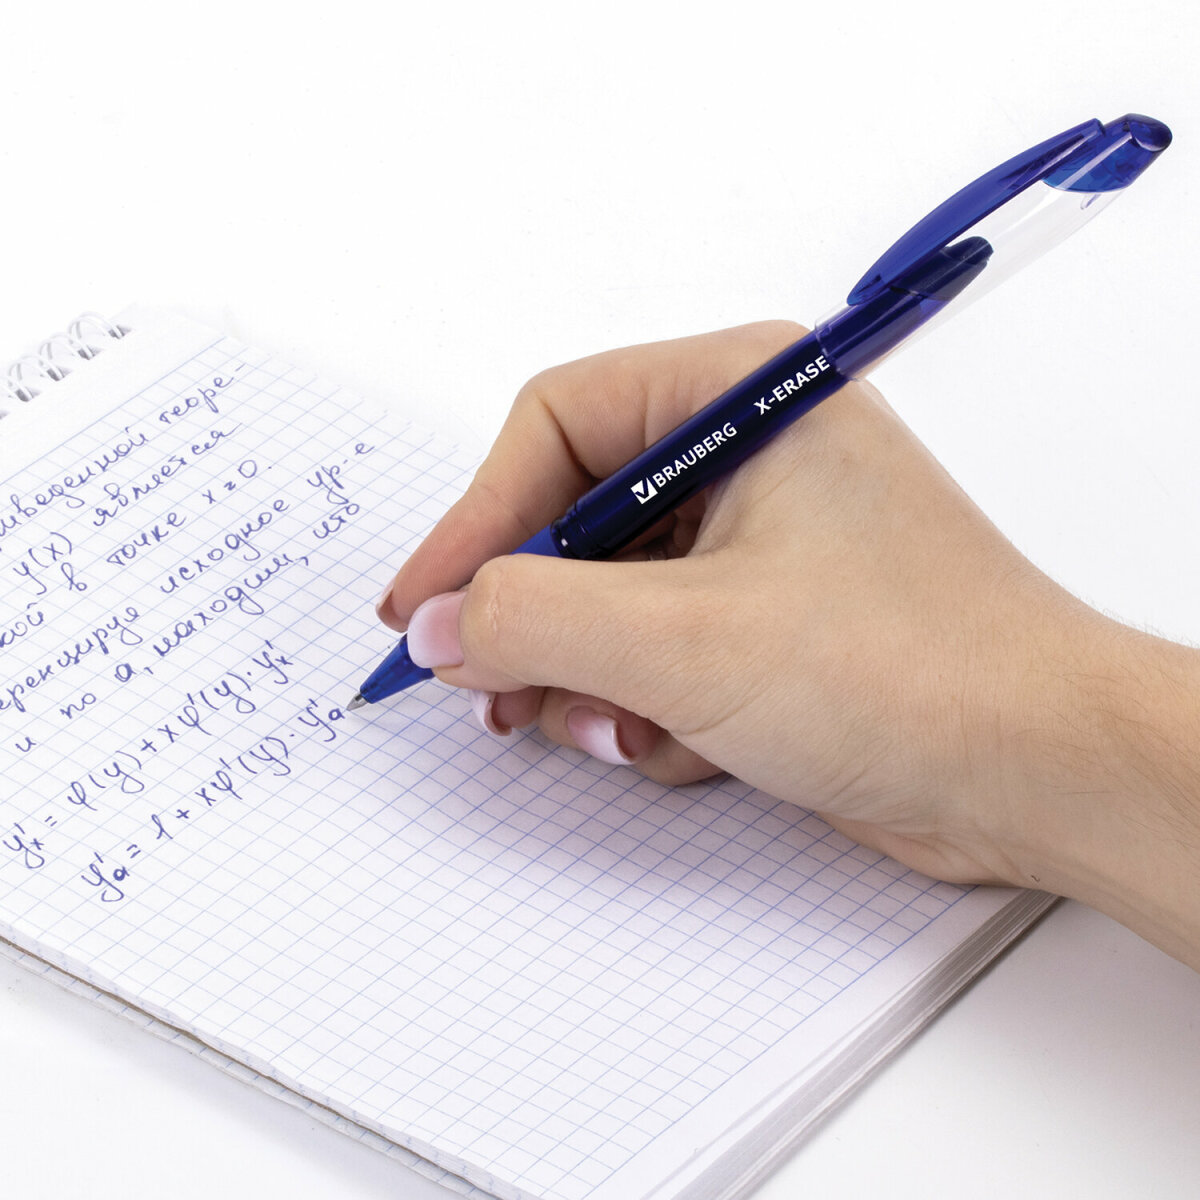 приведенной теоре-
y(x) является
кой в точке x=0.
ференцируя исходное ур-е
и по a, находим, что
y'x = φ(y) + xφ'(y)·y'x
y'a = 1 + xφ'(y)·y'a
BRAUBERG X-ERASE